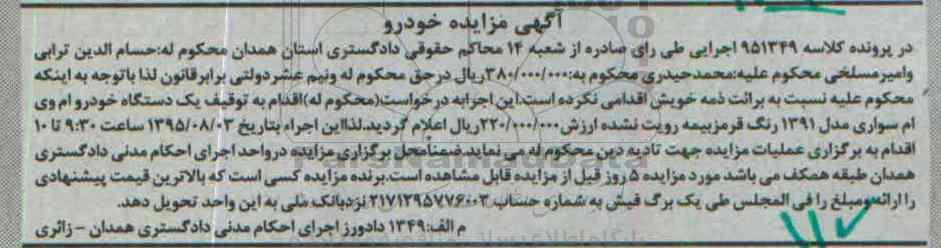 آگهی مزایده خودرو
در پرونده کلاسه ۹۵۱۳۴۹ اجرایی طی رای صادره از شعبه ۱۴ محاکم حقوقی دادگستری استان همدان محکوم له:حسام الدین ترابی
وامیرمسلخی محکوم علیه:محمدحیدری محکوم به:۳۸۰/۰۰۰/۰۰۰ریال درحق محکوم له ونیم عشردولتی برابرقانون لذا باتوجه به اینکه
محکوم علیه نسبت به برائت ذمه خویش اقدامی نکرده است.این اجرابه درخواست(محکوم له)اقدام به توقیف یک دستگاه خودرو ام وی
ام سواری مدل ۱۳۹۱ رنگ قرمزبیمه رویت نشده ارزش۲۲۰/۰۰۰/۰۰۰ریال اعلام گردید.لذااین اجراء بتاریخ ۱۳۹۵/۰۸/۰۳ ساعت ۹:۳۰ تا ۱۰
اقدام به برگزاری عملیات مزایده جهت تادیه دین محکوم له می نماید.ضمنأمحل برگزاری مزایده درواحد اجرای احکام مدنی دادگستری
همدان طبقه همکف می باشد مورد مزایده ۵ روز قبل از مزایده قابل مشاهده است.برنده مزایده کسی است که بالاترین قیمت پیشنهادی
را ارائه ومبلغ را فی المجلس طی یک برگ فیش به شماره حساب ۲۱۷۱۲۹۵۷۷۶۰۰۳ نزدبانک ملی به این واحد تحویل دهد.
م الف:۱۳۴۹ دادورز اجرای احکام مدنی دادگستری همدان - زائری